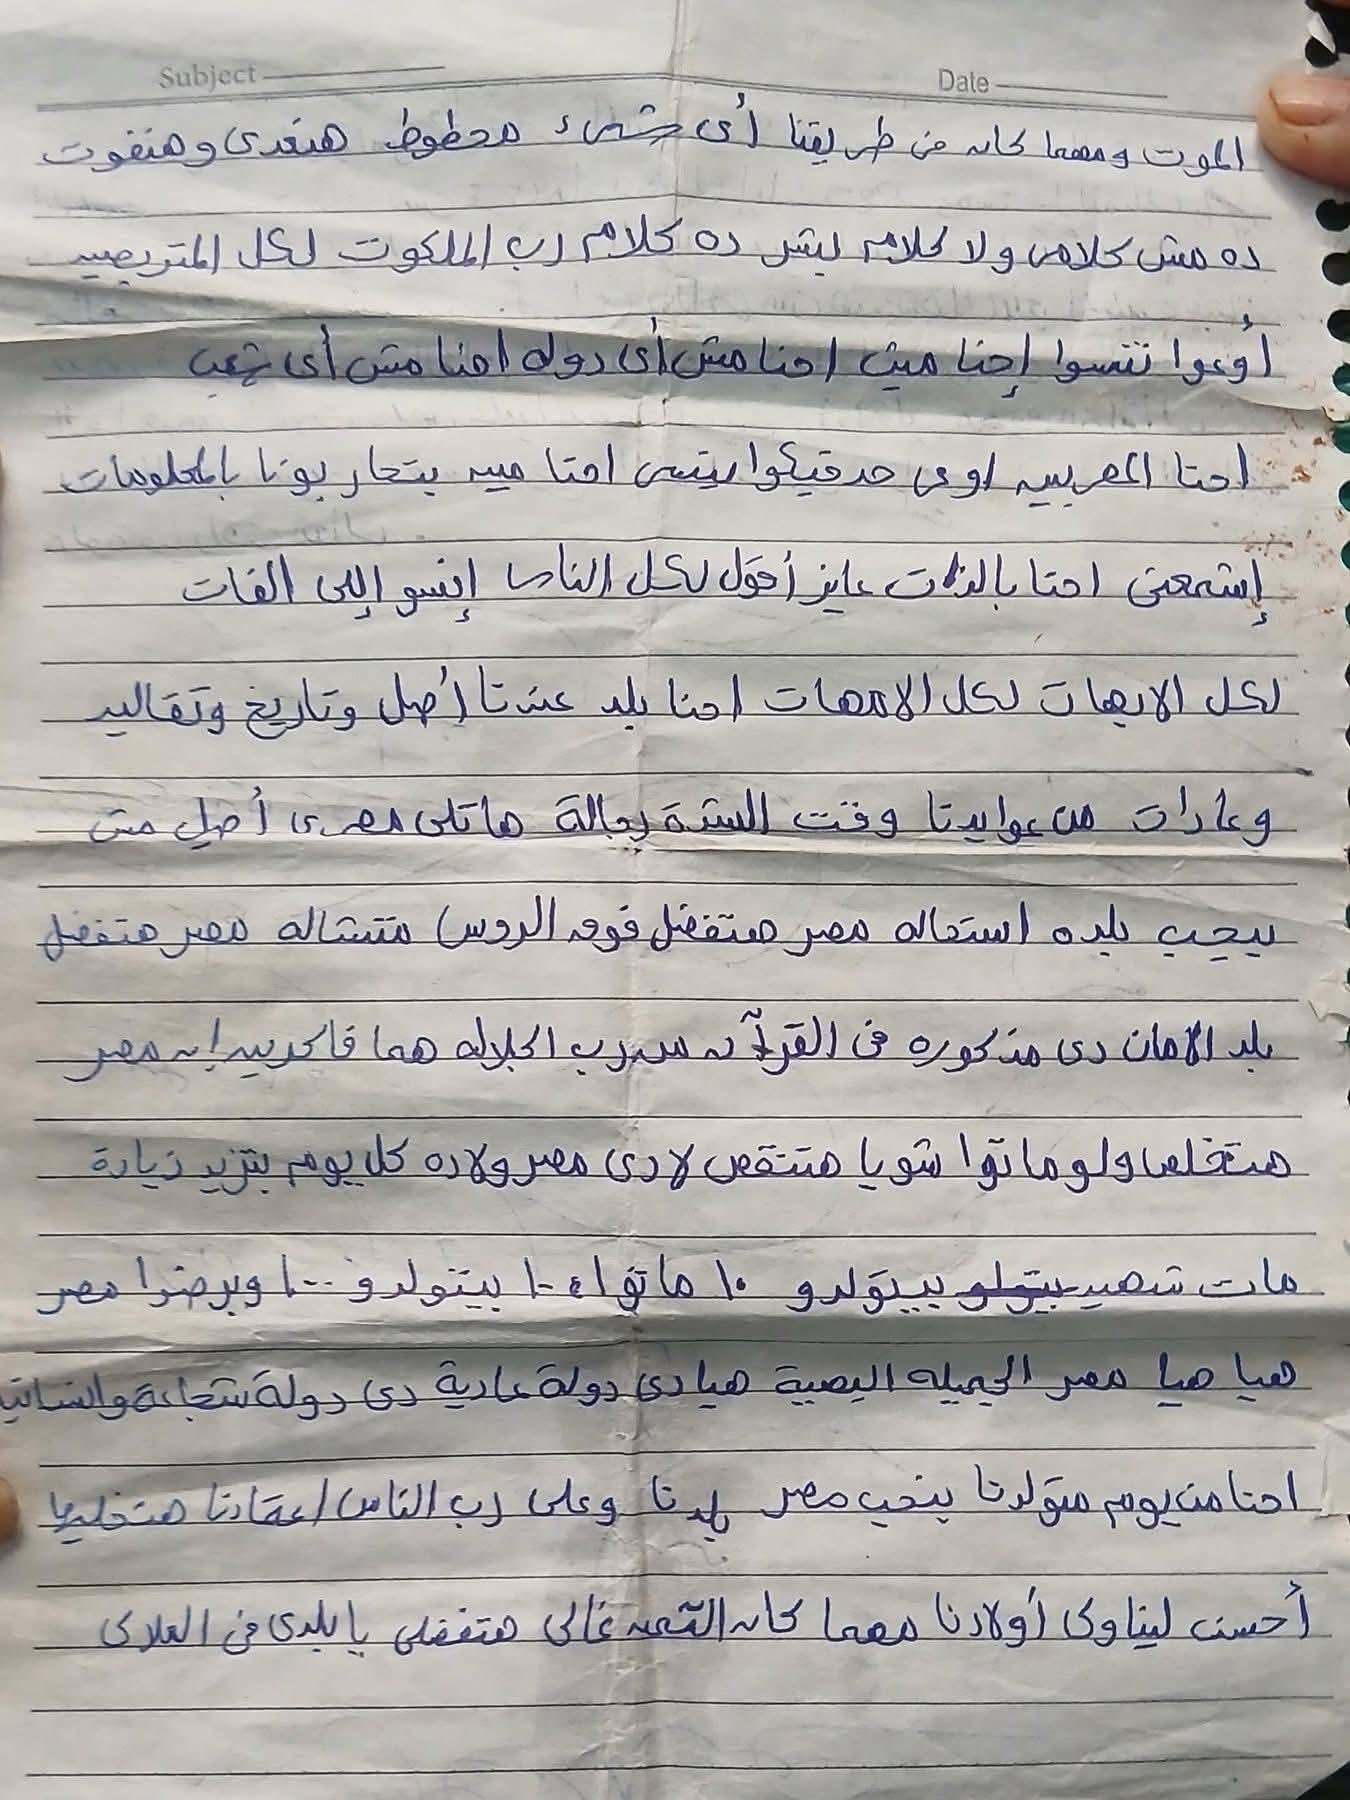 Subject
Date
الموت ومهما كان في طريقنا أى شىء محطوط هنعدى وهنفوت
ده مش كلامى ولا كلام بشر ده كلام رب الملكوت لكل المتربصين
أوعوا تنسوا إحنا مين احنا مش أى دوله احنا مش أى شعب
احنا المصريين اوعى حد فيكوا ينسى احنا مين بتحاربونا بالمعلومات
إشمعنى احنا بالذات عايز أقول لكل الناس إنسو إللى الفات
لكل الابهات لكل الامهات احنا بلد عندنا أصل وتاريخ وتقاليد
وعادات من عوايدنا وقت الشدة رجالة هاتلى مصرى أصلى مش
بيحب بلده استحاله مصر هتفضل فوق الروس متشاله مصر هتفضل
بلد الامان دى مذكوره فى القرآن من رب الجلاله هما فاكرين ان مصر
هتخلص ولو ماتوا شويا هتنقص لا دى مصر ولاده كل يوم بتزيد زيادة
مات شهيد بيتولدو ١٠ ماتوا ١٠ بيتولدو ١٠٠ وبرضوا مصر
هيا هيا مصر الجميله البهية هيا دى دولة عادية دى دولة شجاعة وانسانية
احنا من يوم متولدنا بنحب مصر بلدنا وعلى رب الناس اعتمادنا هنخليها
أحسن لينا ولى أولادنا مهما كان التمن غالى هتفضلى يا بلدى فى العلالى